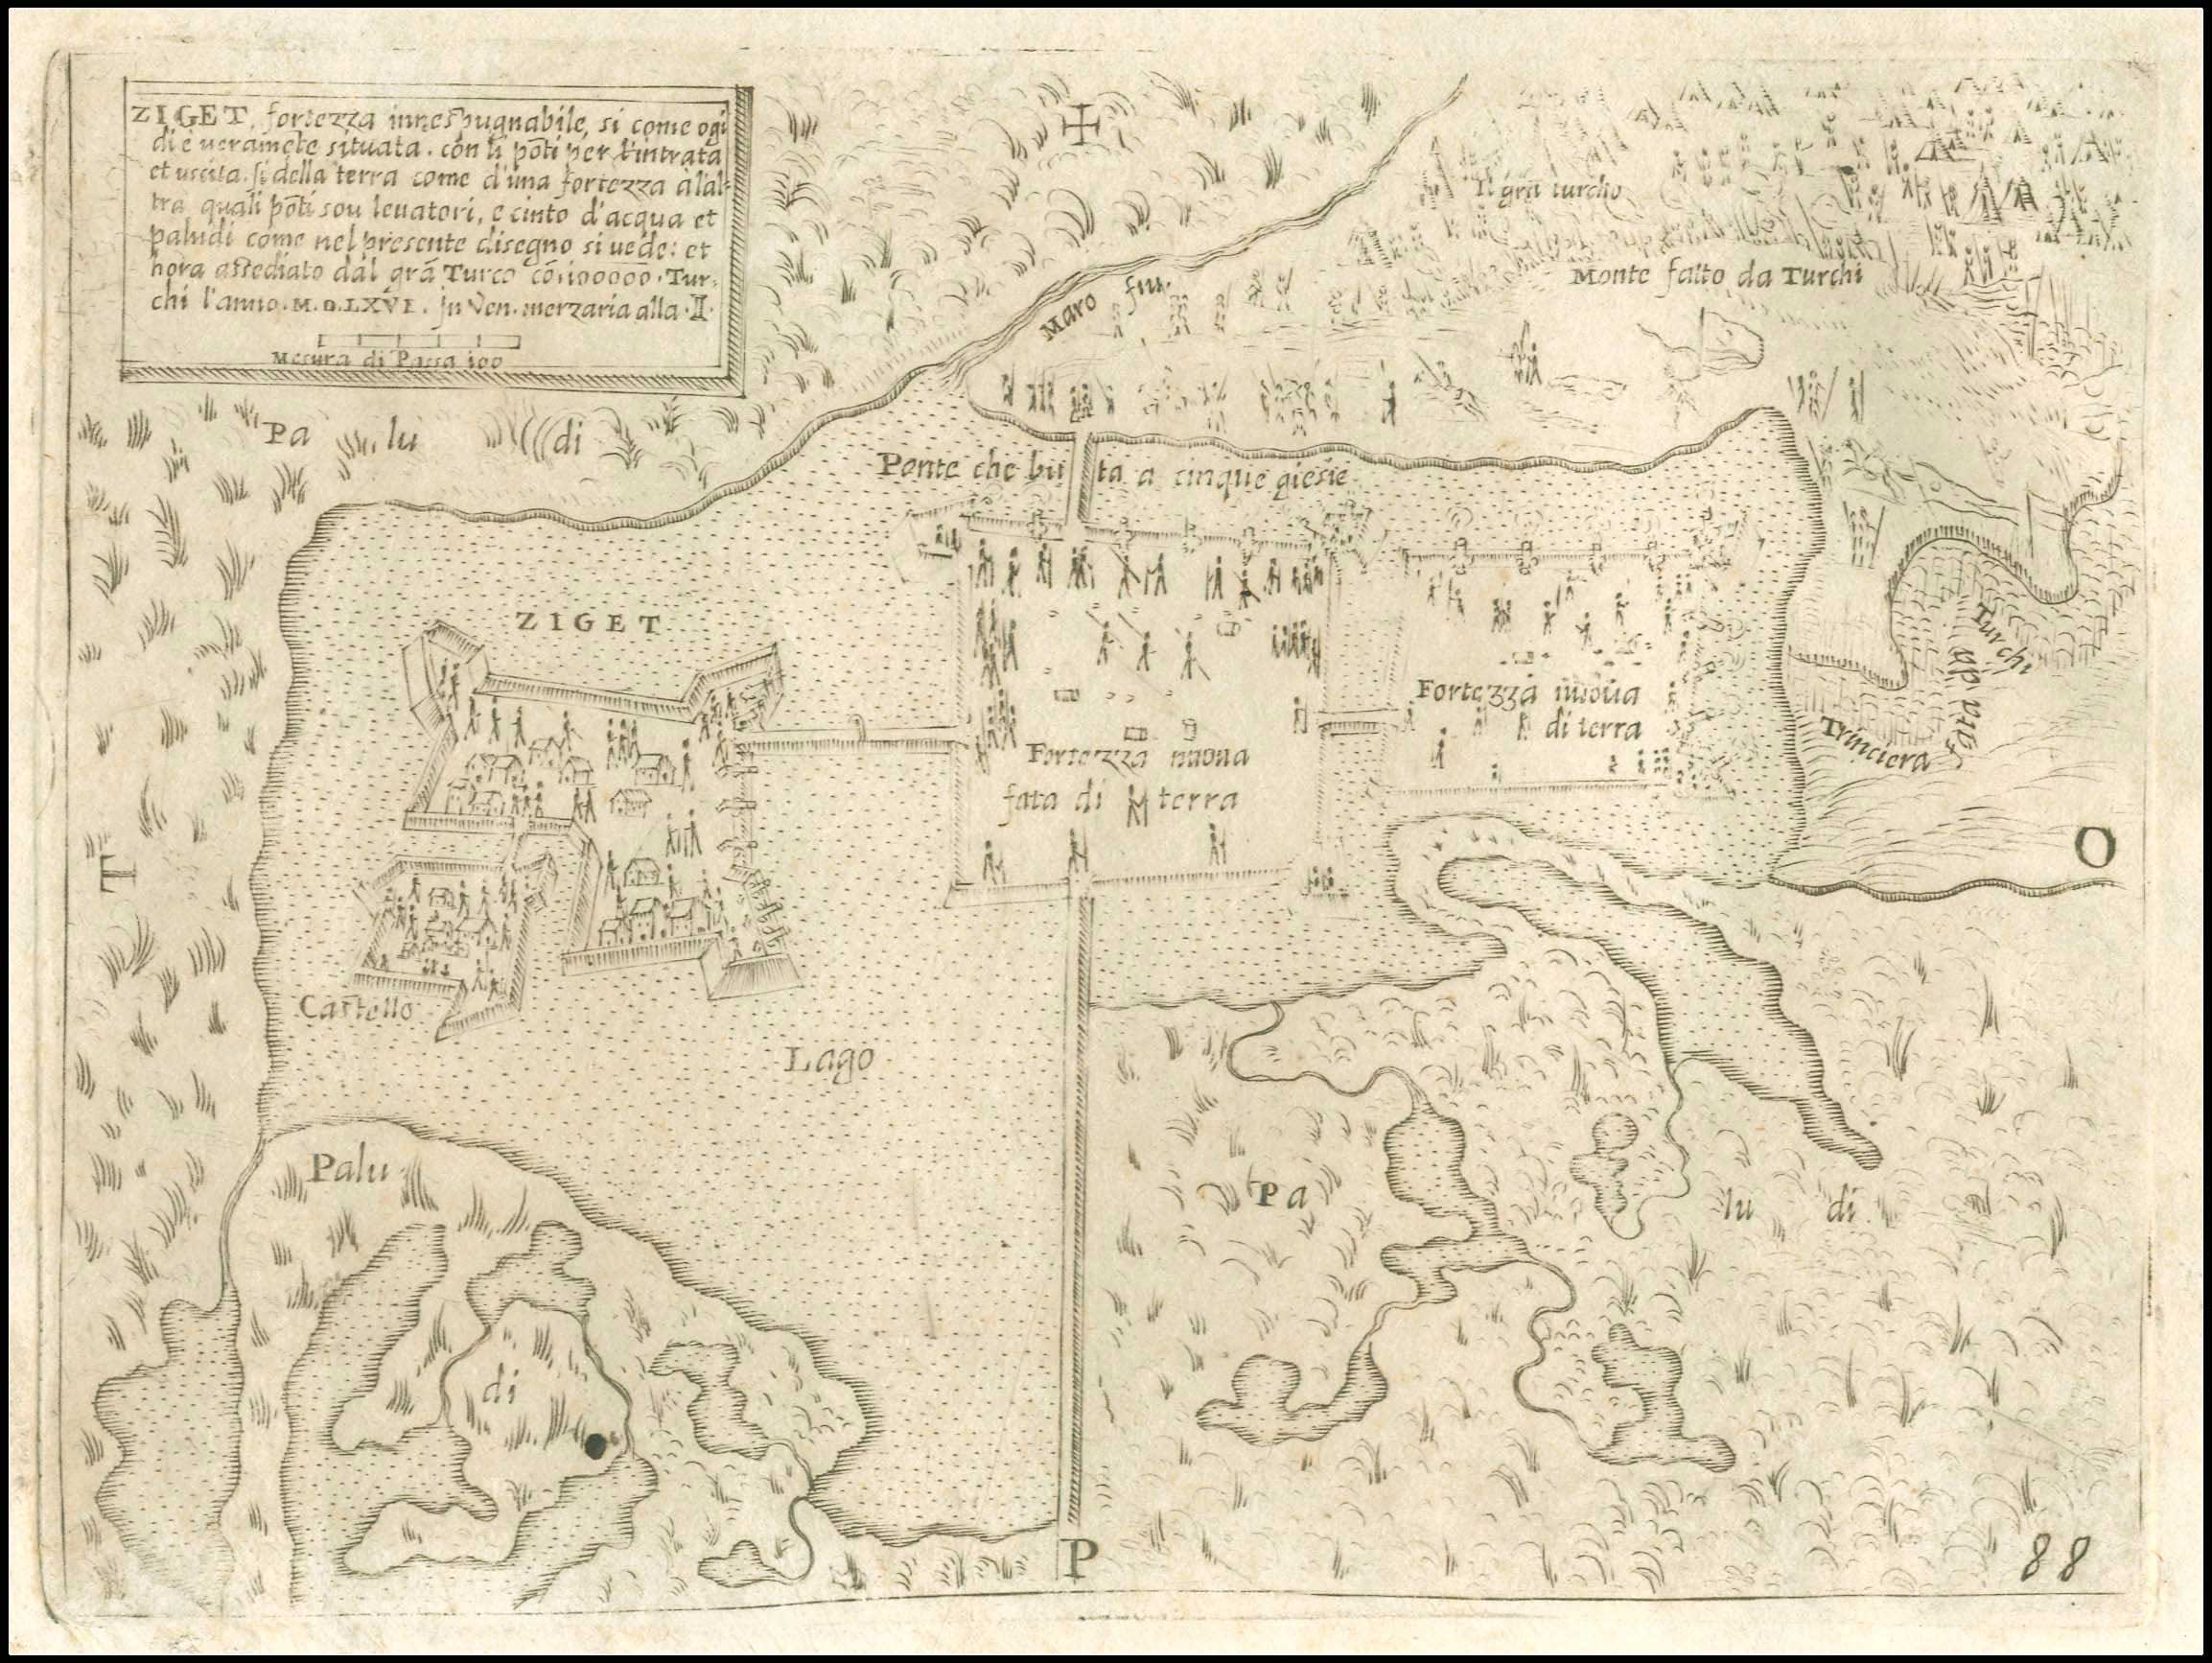 ZIGET. fortezza innespugnabile, si come ogi
di è ueramẽte situata. con li põti per l'intrata
et uscita. si della terra come d'una fortezza à l'al-
tra quali põti sou leuatori, e cinto d'acqua et
paludi come nel presente disegno si uede: et
hora assediato dal grã Turco cõ 100000. Tur-
chi l'anno. M.D.LXVI. In Ven. merzaria alla
Mesura di Passa 100
Il grã turcho
Monte fatto da Turchi
Maro fiu.
Pa lu di
Ponte che buta a cinque giesie
ZIGET
Turchi
fata da
Trinciera
Fortezza nuoua
di terra
Fortezza nuoua
fata di terra
T
O
Castello
Lago
Palu
di
Pa lu di
P
88